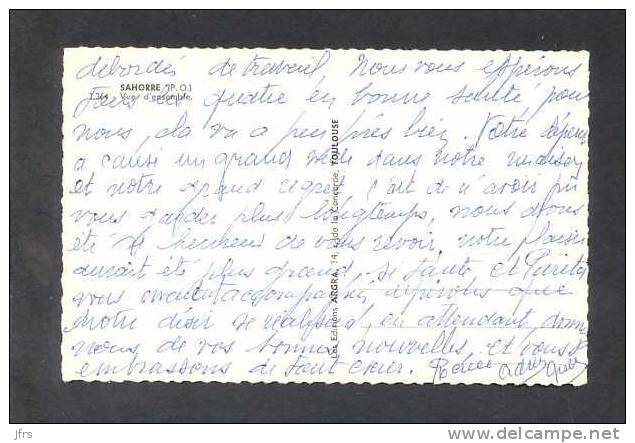 débordés de travail Nous vous espérons
SAHORRE (P. O.)
7.364 - Vue d'ensemble.
tous les quatre en bonne santé pour
nous, cela va à peu près bien. Votre départ
a causé un grand vide dans notre maison
et notre grand regret c'est de n'avoir pu
vous garder plus longtemps, nous avons
été si heureux de vous revoir, notre plaisir
aurait été plus grand, si Tante et
vous avaient accompagnés espérons que
notre désir se réalisera, en attendant donne
nous de vos bonnes nouvelles, et vous
embrassons de tout cœur.
Les Editions ARGRA, 14, r. de la Concorde, TOULOUSE
jfrs
www.delcampe.net